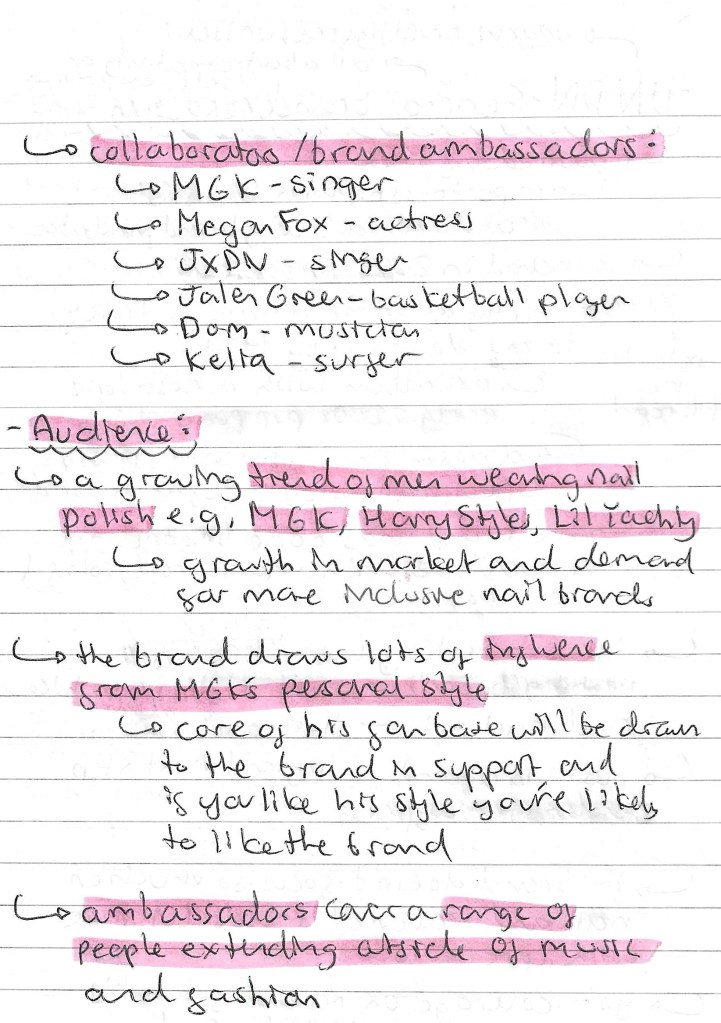 ↳ collaborators / brand ambassadors:
↳ MGK - singer
↳ Megan Fox - actress
↳ JXDN - singer
↳ Jalen Green - basketball player
↳ Dom - musician
↳ Kelia - surfer
- Audience:
↳ a growing trend of men wearing nail
polish e.g. MGK, Harry Styles, Lil Yachty
↳ growth in market and demand
for more inclusive nail brands
↳ the brand draws lots of influence
from MGK's personal style
↳ core of his fan base will be drawn
to the brand in support and
if you like his style you're likely
to like the brand
↳ ambassadors cover a range of
people extending outside of music
and fashion